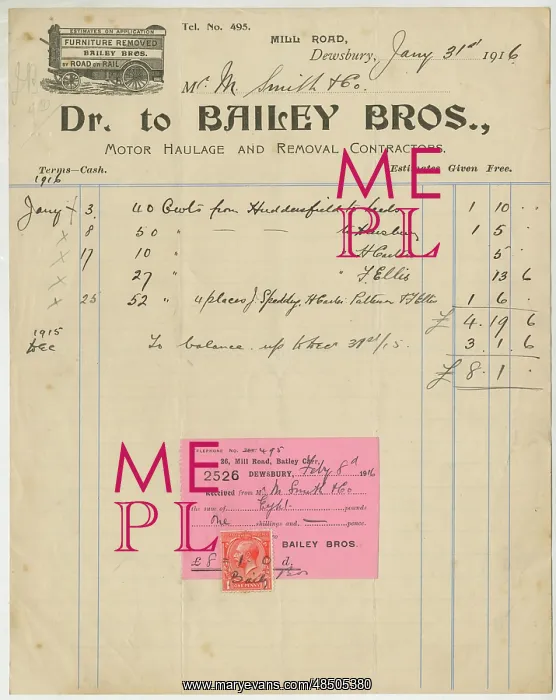 Tel. No. 495.
ESTIMATES ON APPLICATION
FURNITURE REMOVED
BAILEY BROS.
BY ROAD OR RAIL
MILL ROAD,
Dewsbury, Jany 31st 1916
Mr. M. Smith & Co.
Dr. to BAILEY BROS.,
MOTOR HAULAGE AND REMOVAL CONTRACTORS.
Terms—Cash. Estimates Given Free.
1916
Jany 3, 40 Cwts from Huddersfield to 1 10 ..
8 50 " — — 1 5 .
17 10 " 5 .
27 " " F. Ellis 13 6
25 52 " 4 places J. Spedding, H. Carter 1 6 .
£ 4.19 6
1915
Dec To balance up to Dec 31st/15. 3 1 6
£ 8.1 .
ME
PL
TELEPHONE No. 495
26, Mill Road, Batley Carr,
2526 DEWSBURY, Feby 8d 1916
Received from Mr. M. Smith & Co
the sum of Eight pounds
One shillings and — pence.
BAILEY BROS.
£8 1 0 d.
ONE PENNY
ME
PL
www.maryevans.com/48505380